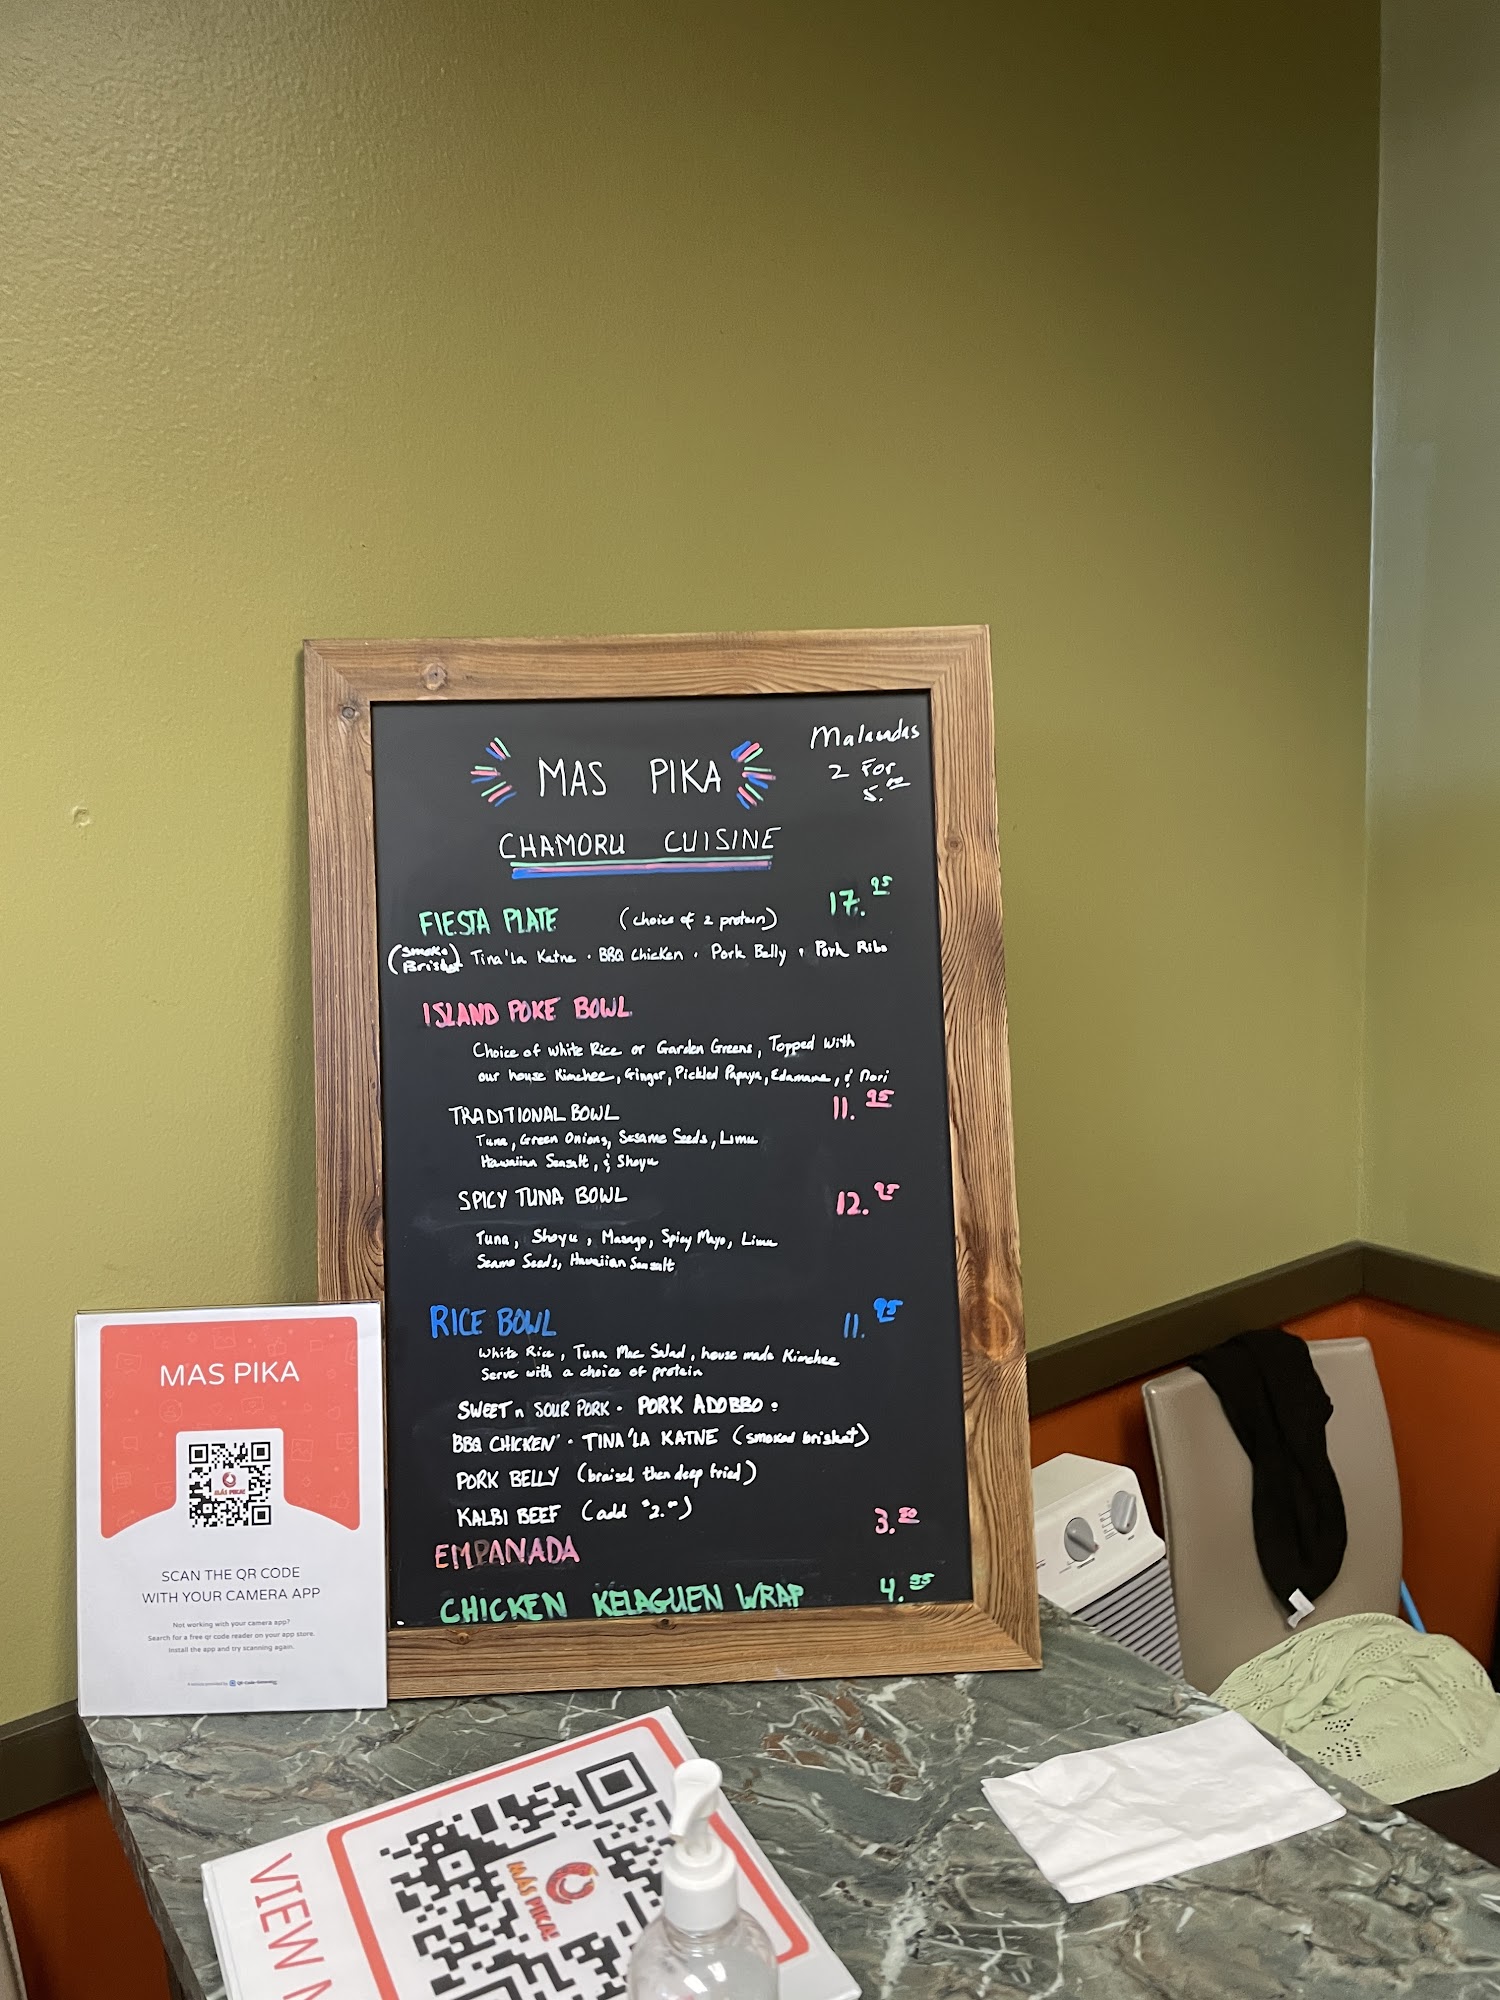 Malaudas
2 For
5.00
MAS PIKA
CHAMORU CUISINE
FIESTA PLATE (choice of 2 protein) 17.95
(Smoke Brisket) Tina'La Katne • BBQ Chicken • Pork Belly • Pork Ribs
ISLAND POKE BOWL
Choice of White Rice or Garden Greens, Topped with
our house Kimchee, Ginger, Pickled Papaya, Edamame, & Nori
TRADITIONAL BOWL 11.95
Tuna, Green Onions, Sesame Seeds, Limu
Hawaiian Seasalt, & Shoyu
SPICY TUNA BOWL 12.95
Tuna, Shoyu, Masago, Spicy Mayo, Limu
Seame Seeds, Hawaiian Seasalt
RICE BOWL 11.95
White Rice, Tuna Mac Salad, house made Kimchee
Serve with a choice of protein
SWEET n SOUR PORK • PORK ADOBBO •
BBQ CHICKEN • TINA'LA KATNE (smoked brisket)
PORK BELLY (braised then deep fried)
KALBI BEEF (add $2.00)
EMPANADA 3.50
CHICKEN KELAGUEN WRAP 4.95
MAS PIKA
MÁS PIKA!
SCAN THE QR CODE
WITH YOUR CAMERA APP
Not working with your camera app?
Search for a free qr code reader on your app store.
Install the app and try scanning again.
VIEW
MÁS PIKA!